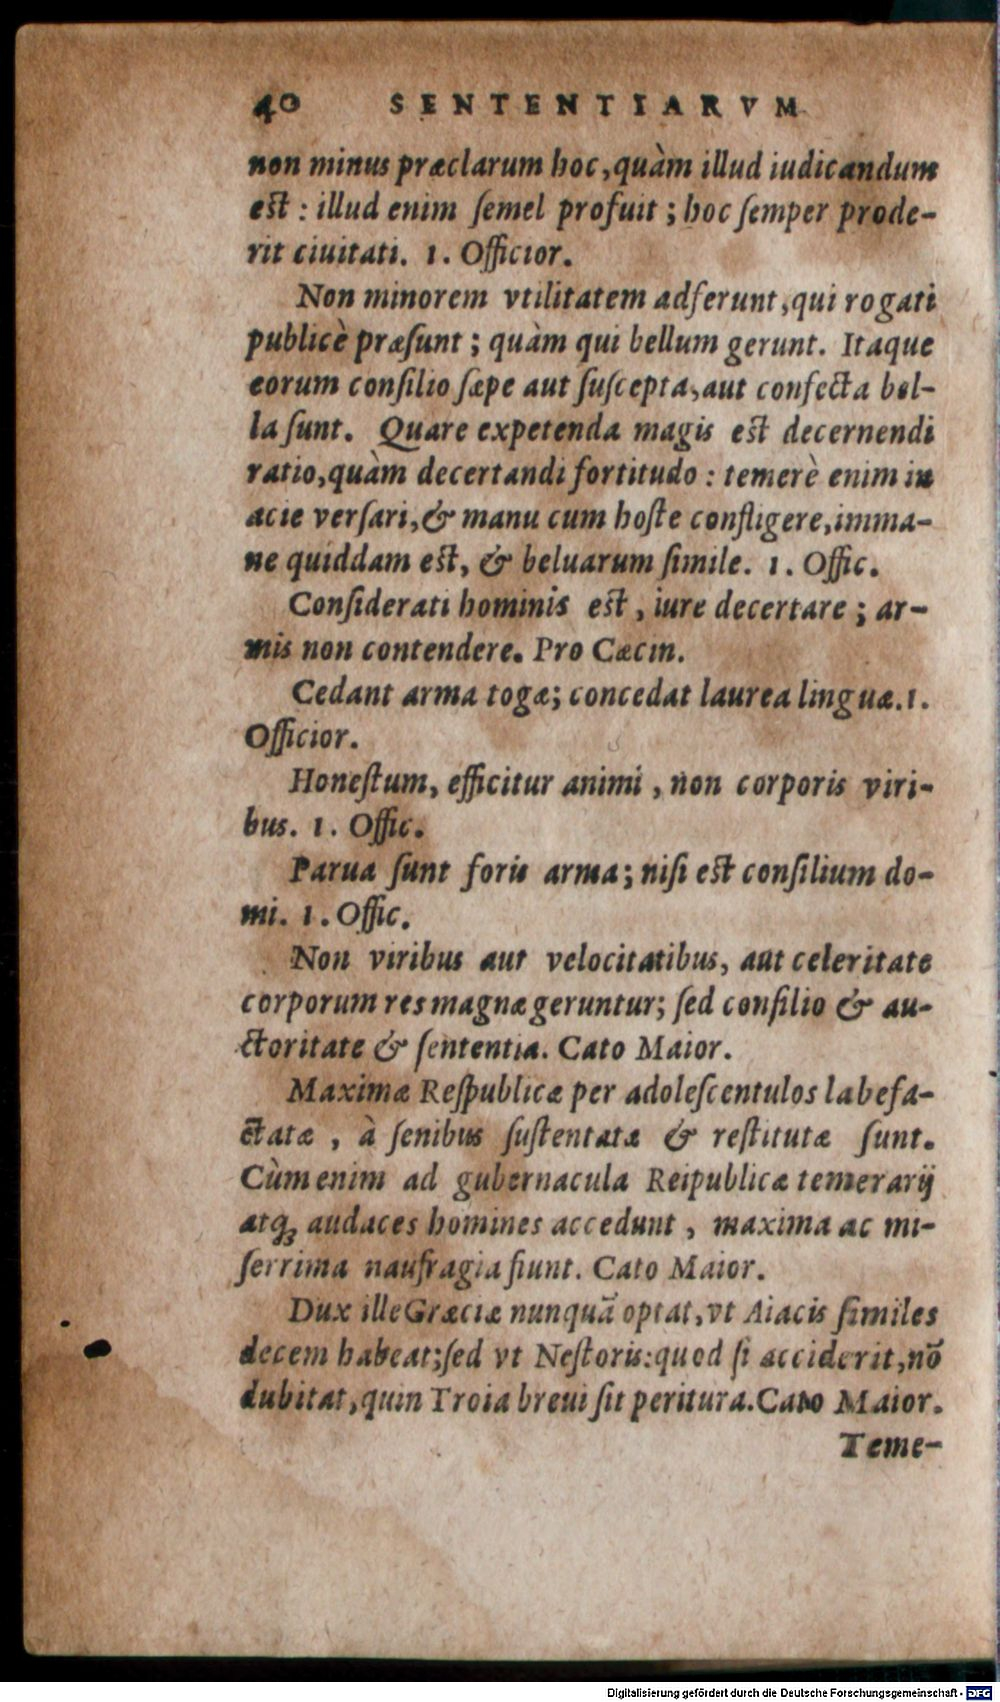 40 SENTENTIARVM
non minus præclarum hoc, quàm illud iudicandum
est : illud enim ſemel profuit ; hoc ſemper prode-
rit ciuitati. 1. Officior.
Non minorem vtilitatem adferunt, qui rogati
publicè præſunt ; quàm qui bellum gerunt. Itaque
eorum conſilio ſæpe aut ſuſcepta, aut confecta bel-
la ſunt. Quare expetenda magis est decernendi
ratio, quàm decertandi fortitudo : temerè enim in
acie verſari, & manu cum hoſte confligere, imma-
ne quiddam est, & beluarum ſimile. 1. Offic.
Conſiderati hominis est, iure decertare ; ar-
mis non contendere. Pro Cæcin.
Cedant arma togæ; concedat laurea linguæ. 1.
Officior.
Honeſtum, efficitur animi, non corporis viri-
bus. 1. Offic.
Parua ſunt foris arma; niſi est conſilium do-
mi. 1. Offic.
Non viribus aut velocitatibus, aut celeritate
corporum res magnæ geruntur; ſed conſilio & au-
ctoritate & ſententia. Cato Maior.
Maximæ Reſpublicæ per adoleſcentulos labefa-
ctatæ, à ſenibus ſuſtentatæ & reſtitutæ ſunt.
Cùm enim ad gubernacula Reipublicæ temerarij
atq; audaces homines accedunt, maxima ac mi-
ſerrima naufragia fiunt. Cato Maior.
Dux ille Græciæ nunquā optat, vt Aiacis ſimiles
decem habeat; ſed vt Neſtoris: quod ſi acciderit, nō
dubitat, quin Troia breui ſit peritura. Cato Maior.
Teme-
Digitalisierung gefördert durch die Deutsche Forschungsgemeinschaft - DFG